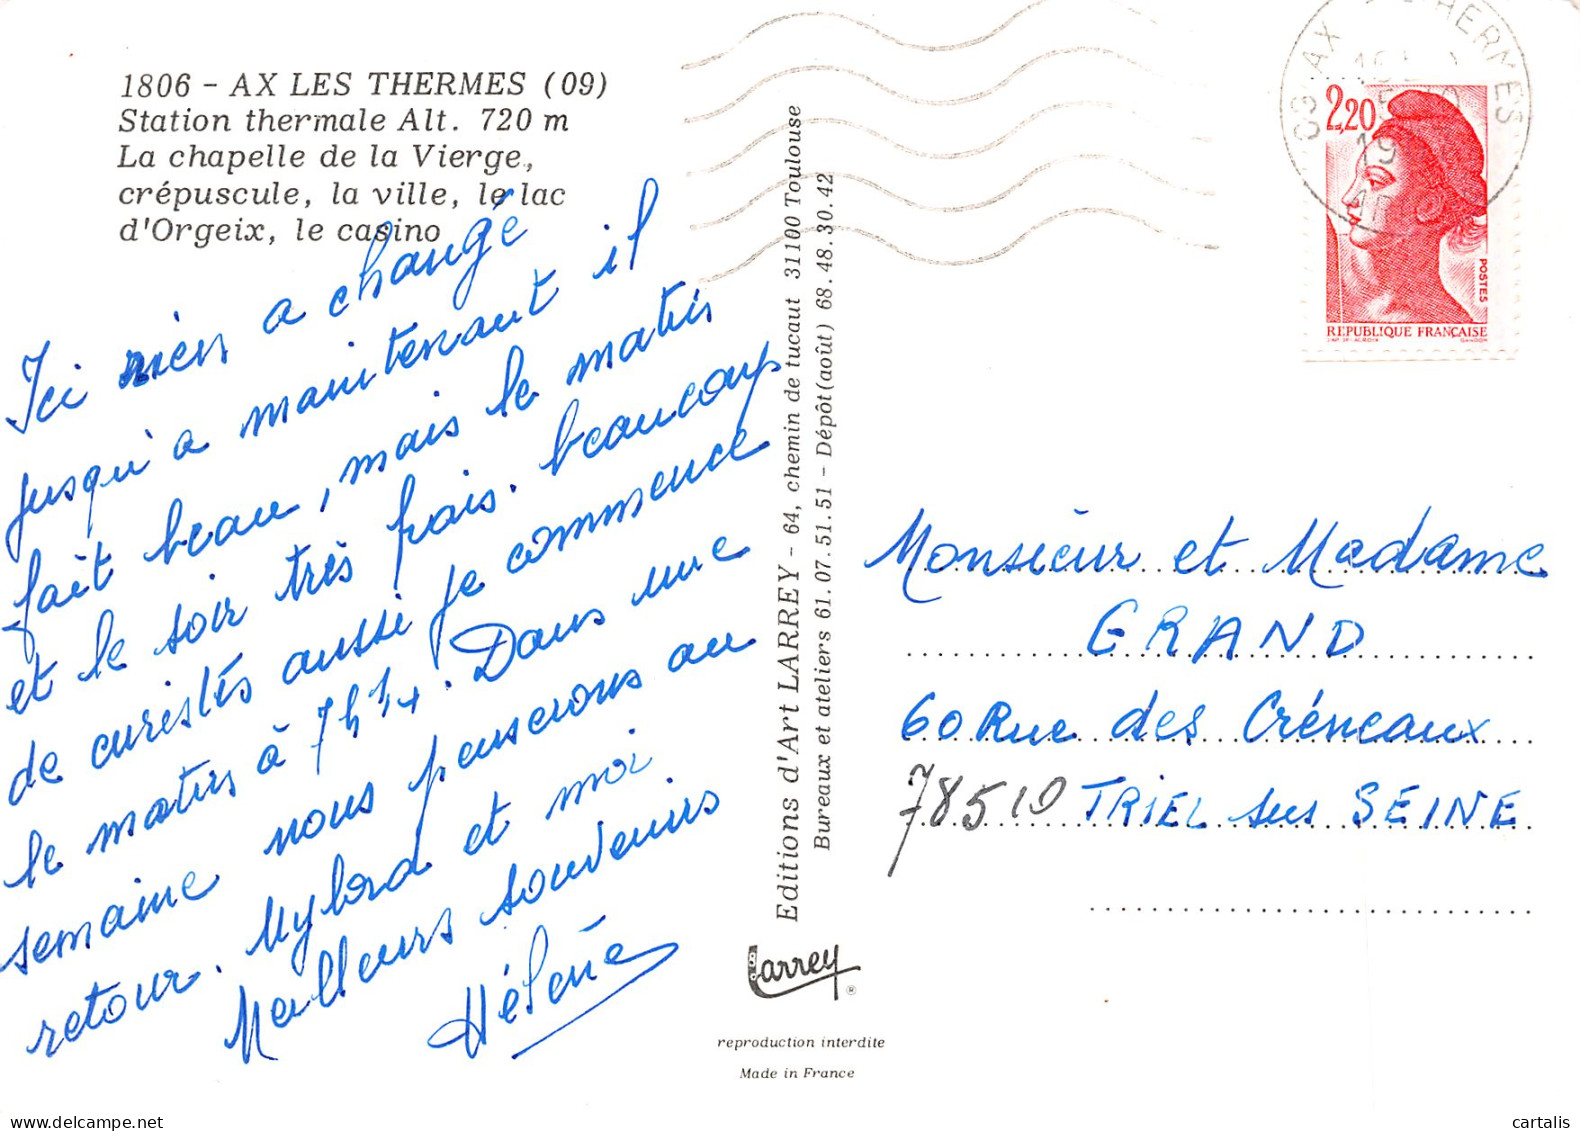 1806 - AX LES THERMES (09)
Station thermale Alt. 720 m
La chapelle de la Vierge,
crépuscule, la ville, le lac
d'Orgeix, le casino
Ici rien a changé
jusqu'a maintenant il
fait beau, mais le matin
et le soir très frais. beaucoup
de curistes aussi je commence
le matin à 7h 1/4. Dans une
semaine nous penserons au
retour. Mylord et moi
Meilleurs souvenirs
Hélène
Editions d'Art LARREY - 64, chemin de tucaut 31100 Toulouse
Bureaux et ateliers 61.07.51.51 - Dépôt(août) 68.48.30.42
Larrey ®
reproduction interdite
Made in France
09 AX THERMES
2,20
POSTES
REPUBLIQUE FRANÇAISE
GANDON
Monsieur et Madame
GRAND
60 Rue des Créneaux
78510 TRIEL sur SEINE
cartalis